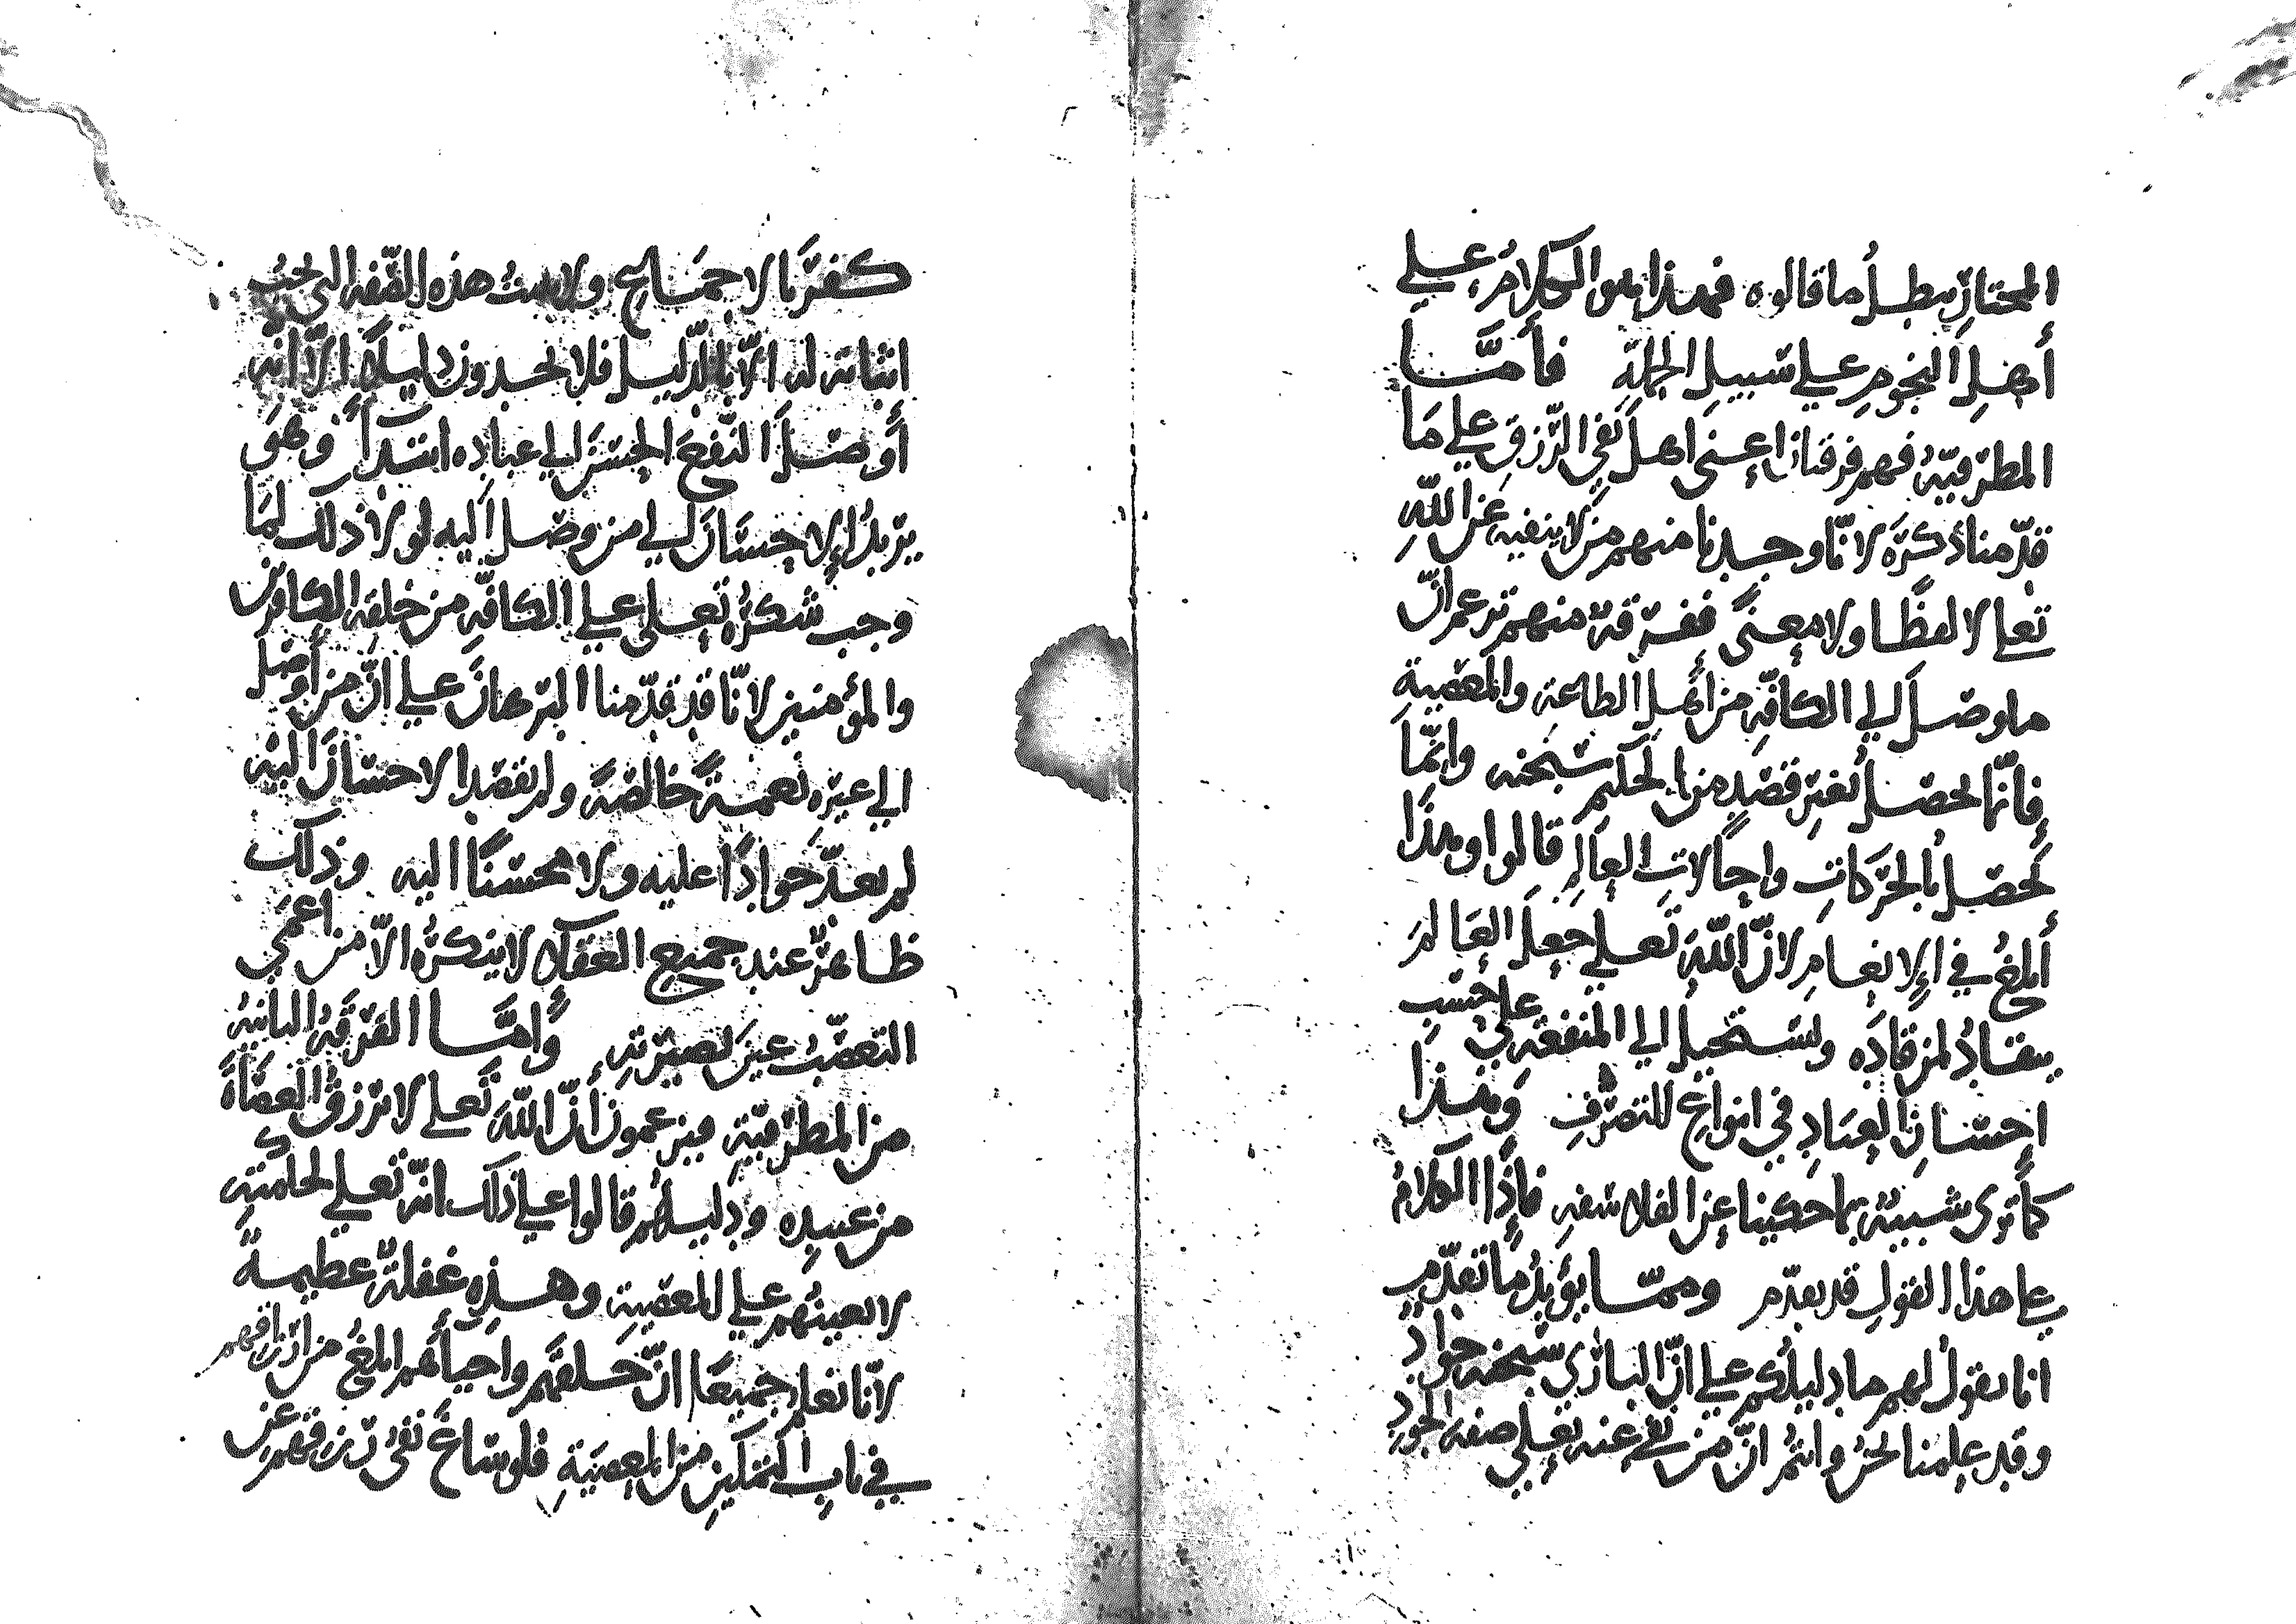 المختار يبطل ما قالوه فهذا هو الكلام على
أهل النجوم على سبيل الجملة فأمّا
المطرّفيّة فهم فرقتان اعني اهل نفي الرّزق على مَا
قدّمنا ذكره لانّا وجدنا منهم من لا ينفيه عن اللّه
تعلى لا لفظًا ولا معنىً ففرقة منهم تزعم انّ
ما وصل الى الكافّه من اهل الطاعة والمعصية
فانّما يحصل بغير قصدٍ من الحكيم سبحنه وانّما
يحصل بالحركات واحالات العالم قالوا وهذا
أبلغ في الإنعام لانّ اللّه تعلى جعل العالم
ينقاد لمن قاده ويستحيل الى المنفعه على حسب
احسان العباد في انواع التصرّف وهذا
كما ترى شبيه بما حكينا عن الفلاسفه فإذًا الكلام
على هذا القول قد تقدّم وممّا يؤيد ما تقدّم
انا نقول لهم ما دليلكم على انّ الباري سبحنه جواد
وقد علمنا نحن وانتم انّ من نفى عنه تعلى صفه الجود
كفر بالاجماع ولا يثبت هذه الصّفه التي يجب
اثباته له الّا بالدّليل فلا يجدون دليلًا الّا انّه
أوصل النفع الحسن الى عباده ابتدآءً وهو
يريد الإحسان الى من وصل اليه لولا ذلك لما
وجب شكره تعلى على الكافّه من خلقه الكافرين
والمؤمنين لانّا قد قدّمنا البرهان على انّ من أوصل
الى غيره نعمةً خالصةً ولم يقصد الاحسان اليه
لم يعدّ جوادًا عليه ولا محسنًا اليه وذلك
ظاهرٌ عند جميع العقلآء لا ينكره الّا من اعمى
التعصّب عين بصيرته وأمّا الفرقه الثانيه
من المطرّفيّة فيزعمون أنّ اللّه تعلى لا يرزق العصاة
من عبيده ودليلهم قالوا على ذلك انّه تعلى لحكمته
لا يعينهم على المعصية وهذه غفلةٌ عظيمةٌ
لأنّا نعلم جميعًا انّ خلقهم واحياهم ابلغ من ارزاقهم
في باب التمكين من المعصية فلو ساغ نفي رزقهم عن